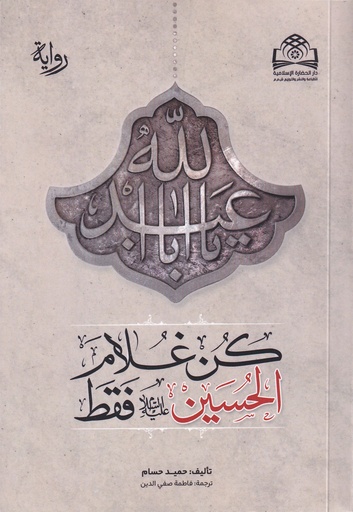 رواية
دار الحضارة الإسلامية
للطباعة والنشر والتوزيع ش.م.م
يا أبا عبد الله
كن غلام
الحسين عليه السلام فقط
تأليف: حميد حسام
ترجمة: فاطمة صفي الدين